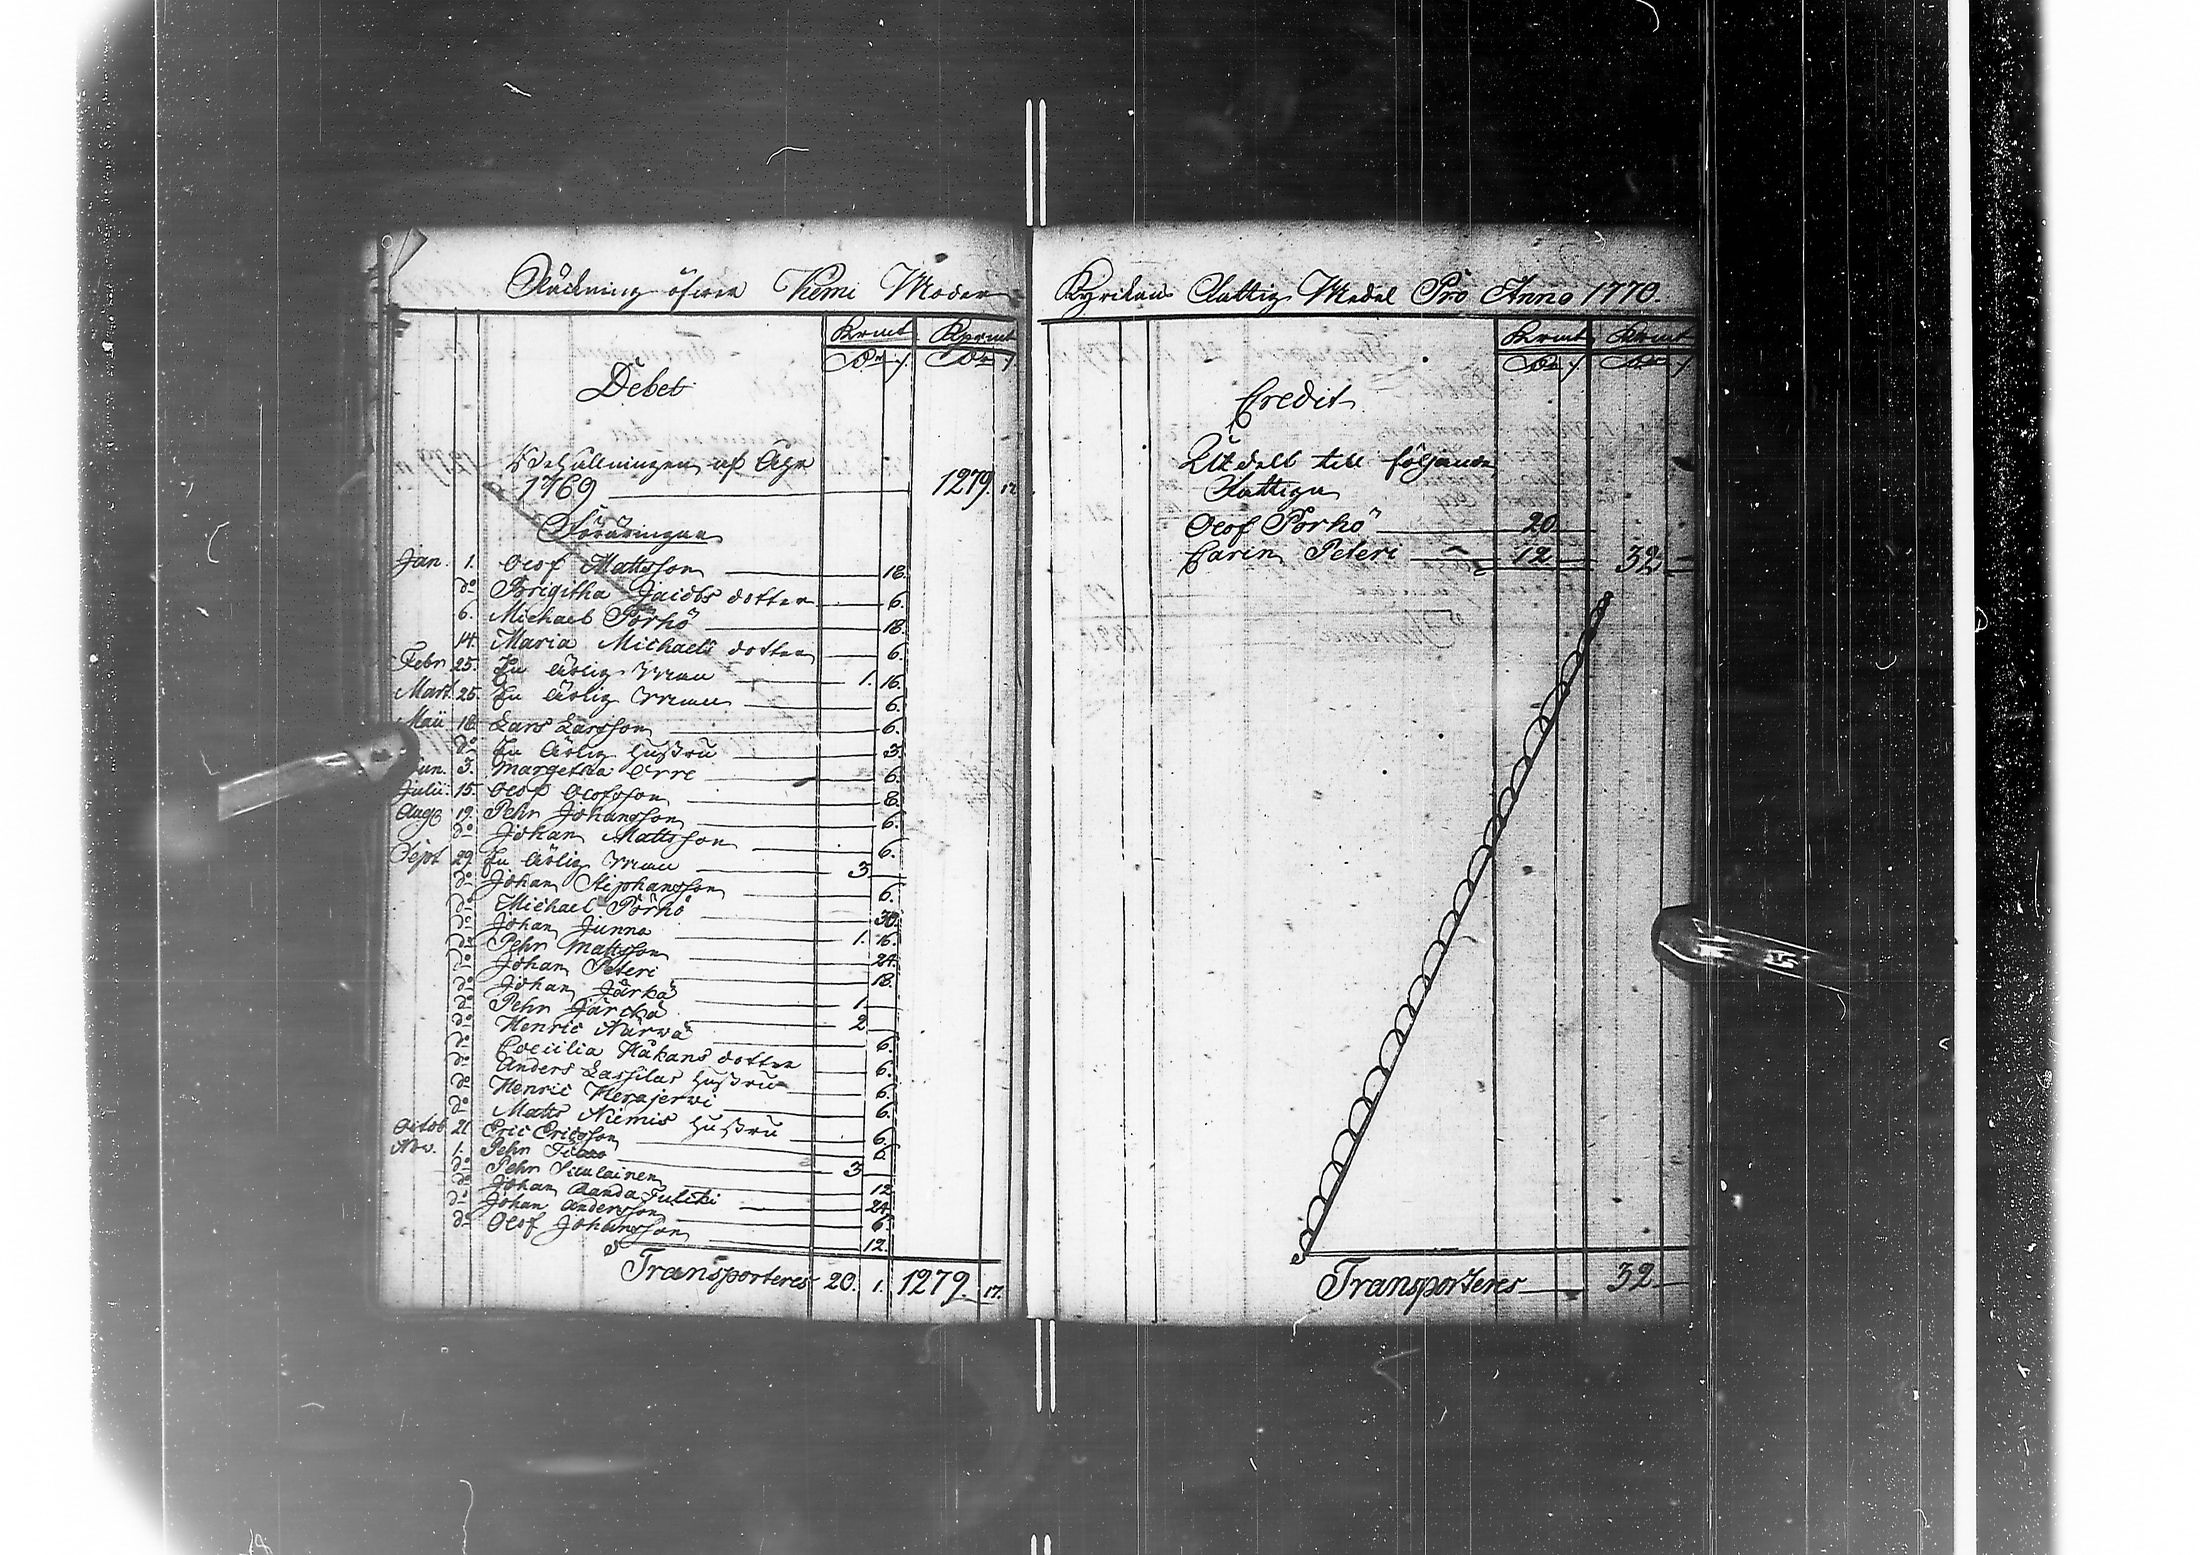 Räckning öfwer Kiemi Moder
Krmt Kprmt
Dr / Dr /
Debet
Behållningen af åhr
1769 1279. 17
Föräringar
Jan. 1. Olof Mattsson 18.
do Brigitha Jacobs dotter 6.
6. Michael Pörhö 18.
14. Maria Michaels dotter 6.
Febr 25. En ärlig Man 1. 16.
Mart. 25. En ärlig Man 6.
Maii 18. Lars Larsson 6.
do En ärlig Hustru 3.
Jun. 3. Margetha Erre 6.
Julii 15. Olof Olofsson 8.
Aug 19. Pehr Johansson 6.
do Johan Mattsson 6.
Sept 29. En ärlig Man 3
do Johan Johansson 6.
do Michael Pörhö 30.
do Johan Junno 1. 16.
do Pehr Mattsson 24.
do Johan Peteri 18.
do Johan Järhä 1
do Pehr Järchä 2
do Henric Närwä 6.
do Coecilia Håkans dotter 6.
do Anders Lassilas Hustru 6.
do Henric Herajerwi 6.
do Matts Niemis Hustru 6.
Octob. 21 Eric Ericsson 6.
Nov. 1. Pehr 3
do Pehr 12
do Johan 24.
do Johan Andersson 6.
do Olof Johansson 12.
Transporteres 20. 1. 1279. 17.
Kyrckans Fattig Medel Pro Anno 1770.
Krmt Krmt
Dr / Dr /
Credit
Utdelt till följande
Fattiga
Olof Pörhö 20
Carin Peteri 12 32
Transporteres 32